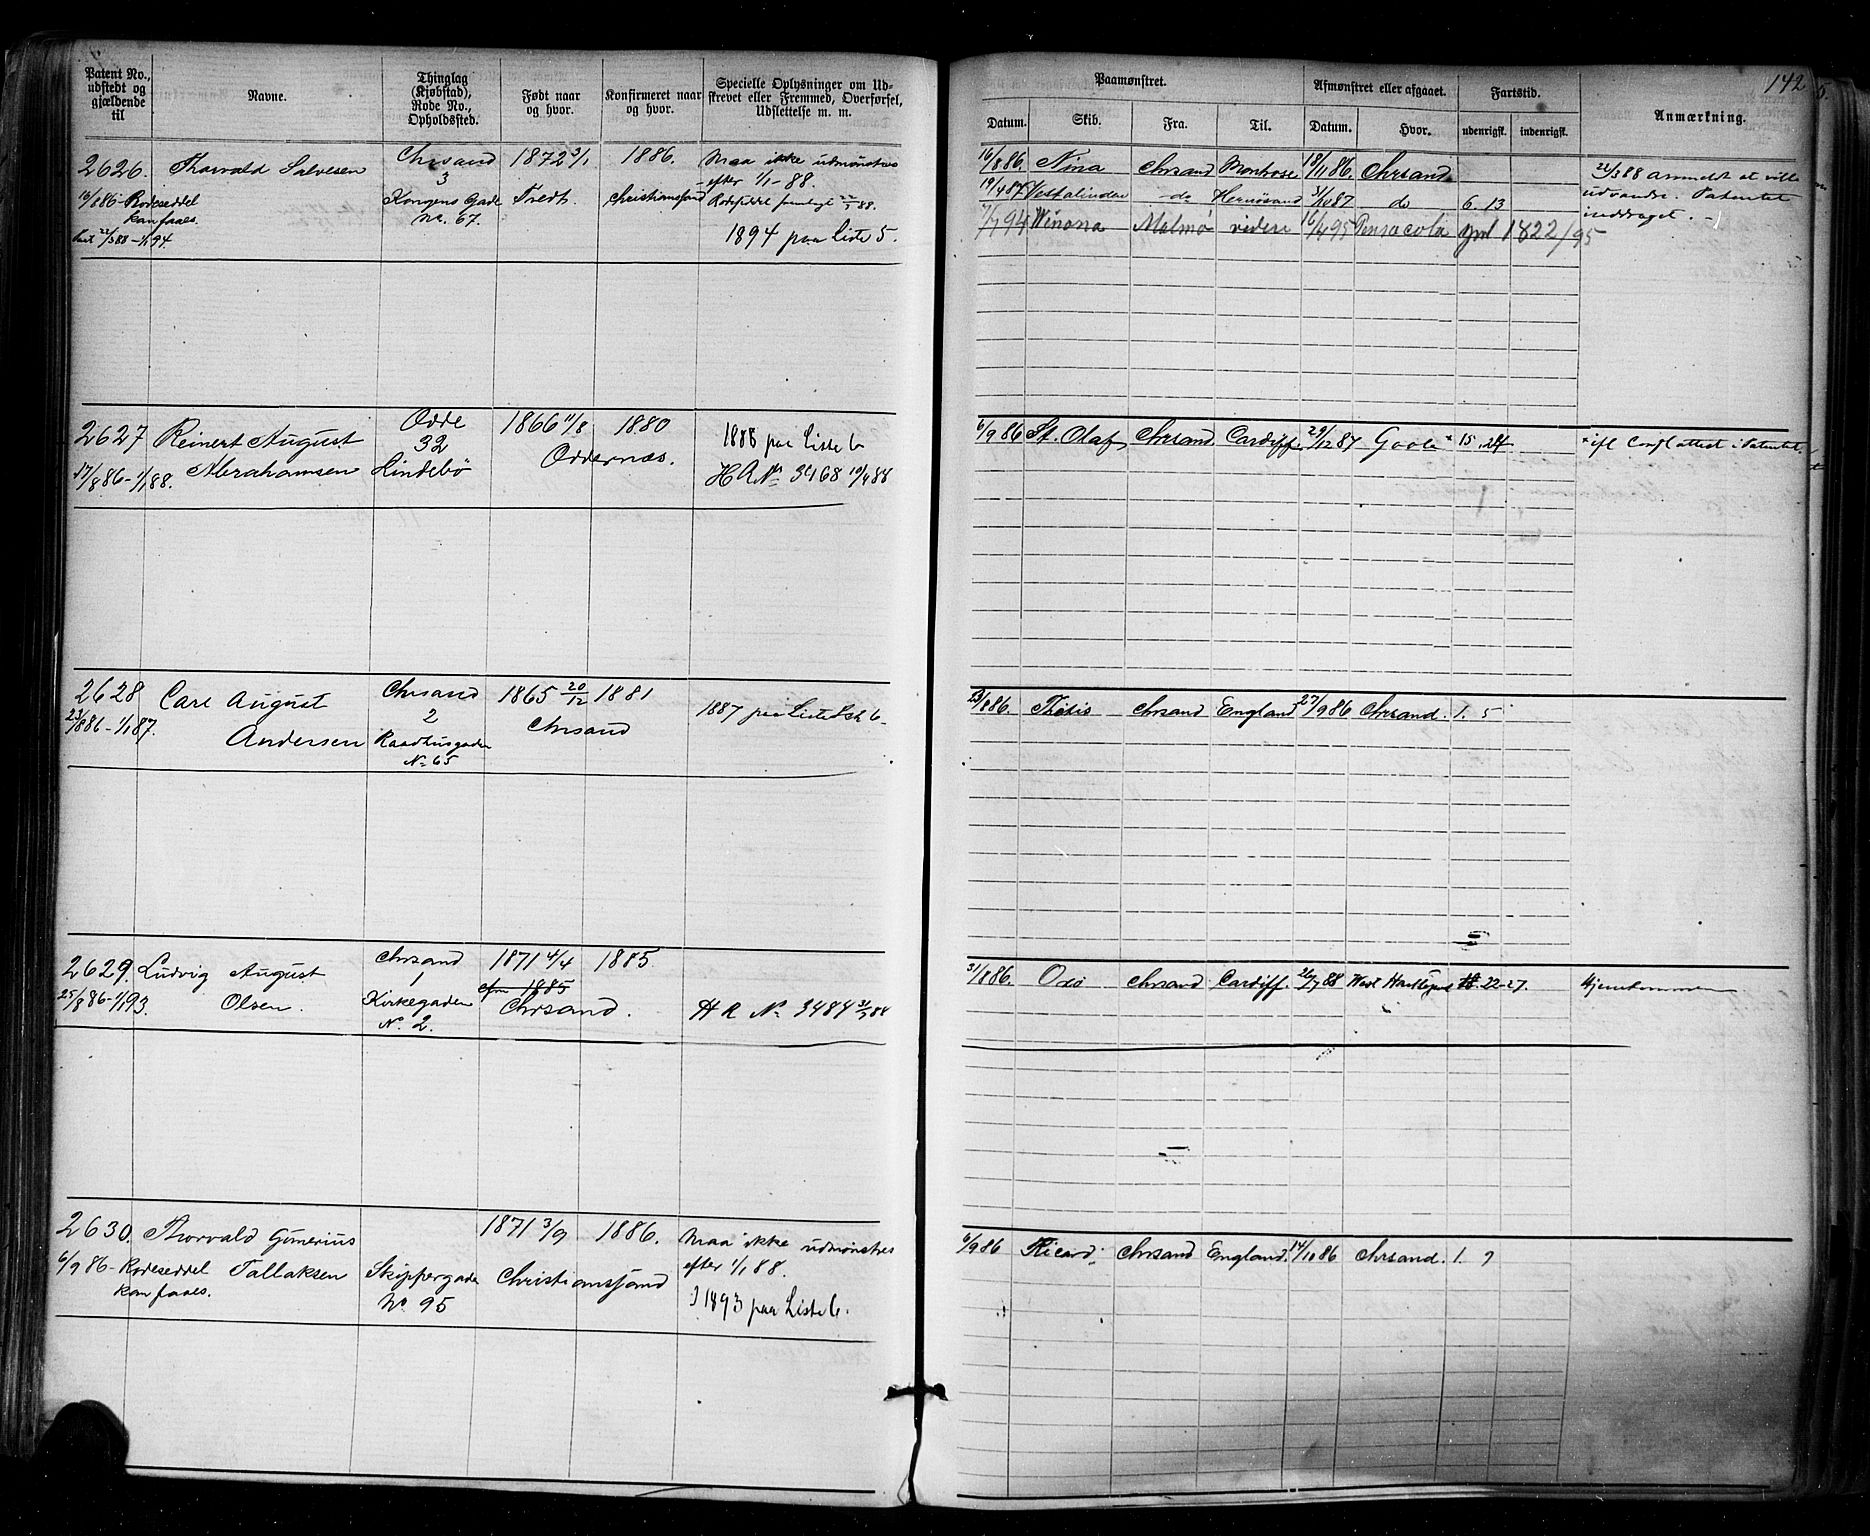 142
Patent No., udstedt og gjældende til
Navne.
Thinglag (Kjøbstad), Rode No., Opholdssted.
Født naar og hvor.
Konfirmeret naar og hvor.
Specielle Oplysninger om Udskrevet eller Fremmed, Overførsel, Udslettelse m. m.
Paamønstret.
Afmønstret eller afgaaet.
Fartstid.
Anmærkning.
Datum.
Skib.
Fra.
Til.
Datum.
Hvor.
udenrigsk.
indenrigsk.
2626. Thorvald Salvesen Chrsand 1872 3/1 1886. Maa ikke udmønstres
3 efter 1/1-88.
16/8 86 - Rodeseddel Kongens Gade Tredt. Christianssand
kan faaes. No. 67.
22/3 88 - 1/1 94 1894 paa Liste 5.
16/8 86. Nina Chrsand Montrose 18/11 86. Chrsand.
19/4 87 Vestalinden do Hernøsand 31/10 87 do 6. 13
94 Winona Malmø videre 16/4 95 Pensacola 1822/95
22/3 88 anmeldt at ville
udvandre. Patentet
inddraget. -
2627 Reinert August Odde 1866 11/8 1880 1888 paa Liste 6
32 Oddernæs.
17/8 86 - 1/1 88. Abrahamsen Hindebø H R No 3468 19/4 88
6/9 86 St. Olaf Chrsand Cardiff 29/12 87 Goole * 15. 24
* ifl Consl attest i Patentet.
2628 Carl August Chrsand 1865 20/12 1881
2 Chrsand 1887 paa Liste 6
23/8 86 - 1/1 87. Andersen Raadhusgaden
No 65
23/8 86. Thetis Chrsand England 27/9 86 Chrsand. 1. 5
2629. Ludvig August Chrsand 1871 4/4 1885.
1 1885
25/8 86 - 1/1 93. Olsen. Kirkegaden Chrsand. H R No 3484
No. 2.
31/8 86. Oxø Chrsand Cardiff. 26/7 88 West Hartlepool 22-27. Hjemkommen
2630. Thorvald Gunerius 1871 3/9 1886. Maa ikke udmønstres
6/9 86 - Rodeseddel Tallaksen Skippergaden Christianssand efter 1/1 88.
kan faaes. No 95 1893 paa Liste 6.
6/9 86 Ricard Chrsand England. 14/10 86 Chrsand. 1. 7